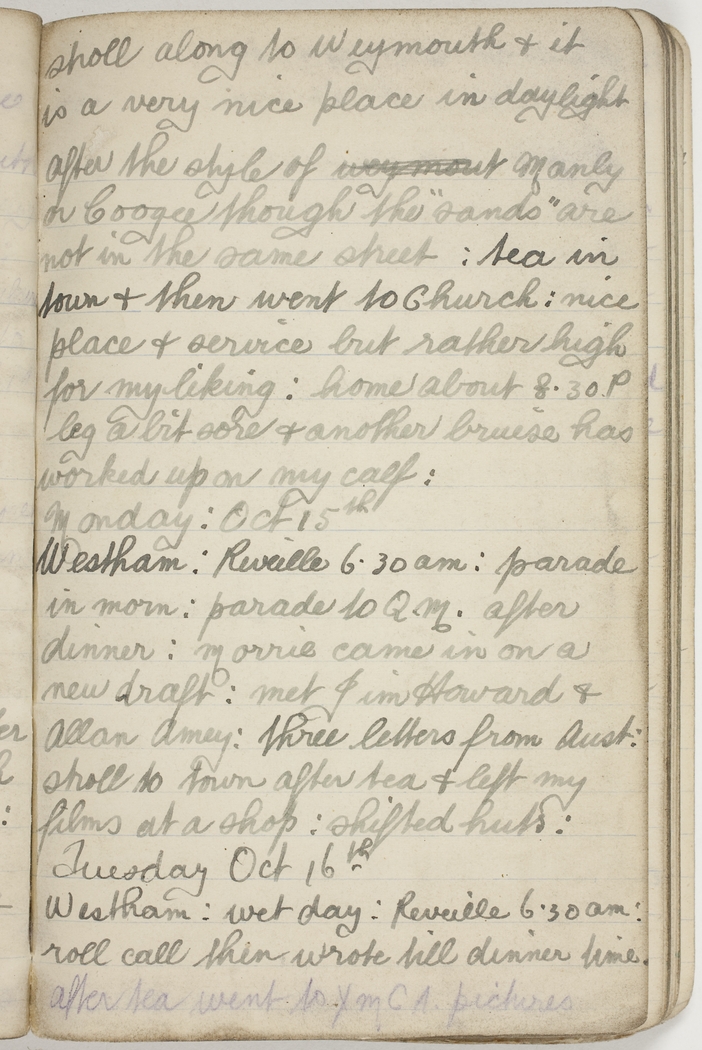 stroll along to Weymouth & it
is a very nice place in daylight
after the style of weymout Manly
or Coogee though the "sands" are
not in the same street : tea in
town & then went to Church : nice
place & service but rather high
for my liking : home about 8.30 P
leg a bit sore & another bruise has
worked up on my calf :
Monday : Oct 15th
Westham : Reveille 6.30 am : parade
in morn : parade to Q.M. after
dinner : Morrie came in on a
new draft : met Jim Howard &
Allan Amey : three letters from Aust :
stroll to town after tea & left my
films at a shop : shifted huts :
Tuesday Oct 16th
Westham : wet day : Reveille 6.30 am :
roll call then wrote till dinner time.
after tea went to Y M C A. pictures